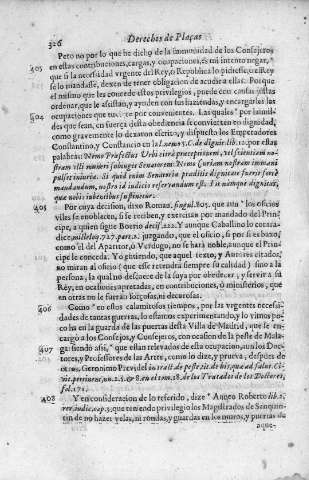 326 Derechos de Plaças
Peto no por lo que he dicho de la inmunidad de los Consejeros
405 en estas contribuciones, cargas, y ocupaciones, es mi intento negar,
que si la necessidad vrgente del Rey, o Republica lo pidiesse, o el Rey
se lo mandasse, dexen de tener obligacion de acudir a ellas. Porque
el mismo que les concede estos privilegios, puede con causas justas
ordenar, que le assistan, y ayuden con sus haziendas, y encargarles las
404 ocupaciones que por convenientes. Las quales por humil-
des que sean, en fuerça desta obediencia se convierten en dignidad,
como gravemente lo dexaron escrito, y dispuesto los Emperadores
Constantino, y Constancio en la C. de lib.12. por estas
palabras: Nemo
Senatorem. Nemo Curiam nostram immani
pulset iniuria. Si quid enim Senatoria praeditis dignitate
mandandum, nostro id iudicio reservandum est. Fit namque dignitas,
que nobis iubentibus sustinetur.
405 Por cuya decision, dixo Romano, singul.805. que aun los oficios
viles se enoblecen, si se reciben, y exercitan por mandado del Prin-
cipe, a quien sigue Boerio decis. Y aunque Caballino lo contra-
dice, 727. part.2. juzgando, que el oficio, si por si es baxo,
como el del Aparitor, o Verdugo, no se hará noble, aunque el Prin-
cipe le conceda. Yo pienso, que aquel texto, y Autores citados,
no miran al oficio (que esse retendrá siempre su calidad) sino a la
persona, la qual no descaece de la suya por obedecer, y servir a su
Rey, en ocasiones apretadas, en contribuciones, o ministerios, que
en otras no le fueran forçosas, ni decorosas.
406 Como en estos calamitosos tiempos, por las vrgentes necessi-
dades de tantas guerras, lo estamos experimentando, y lo vimos po-
co ha en la guarda de las puertas desta Villa de Madrid, que se en-
cargó a los Consejos, y Consejeros, con ocasion de la peste de Mala-
407 ga: siendo assi, que estan relevados de esta ocupacion, aun los Doc-
tores, y Professores de las Artes, como lo dize, y prueva, despues de
otros, Geronimo Previdel in tract. de peste, tit. de his, quae ad salut. Ci-
vit. pertinent, de los Tratados de los Doctores,
fol.171.
408 Y en consideracion de lo referido, dize Anneo Roberto lib.2.
rer. iudic. cap.3. que teniendo privilegio los Magistrados de Senquin-
tin de no hazer velas, ni rondas, y guardas en los muros, y puertas de
aque-